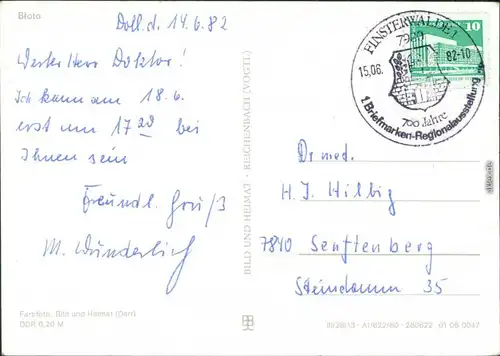 Bloto
Doll. d. 14.6.82
Werter Herr Doktor!
Ich kann am 18.6.
erst um 17 20 bei
Ihnen sein
Freundl. Gruß
M. Wunderlich
Farbfoto: Bild und Heimat (Darr)
DDR 0,20 M
BILD UND HEIMAT · REICHENBACH (VOGTL)
FINSTERWALDE 1
7980
15.06.
82-10
700 Jahre
1. Briefmarken-Regionalausstellung
10
Dr med.
H. J. Hilbig
7840 Senftenberg
Steindamm 35
III/26/13 · A1/622/80 · 280622 01 06 0047